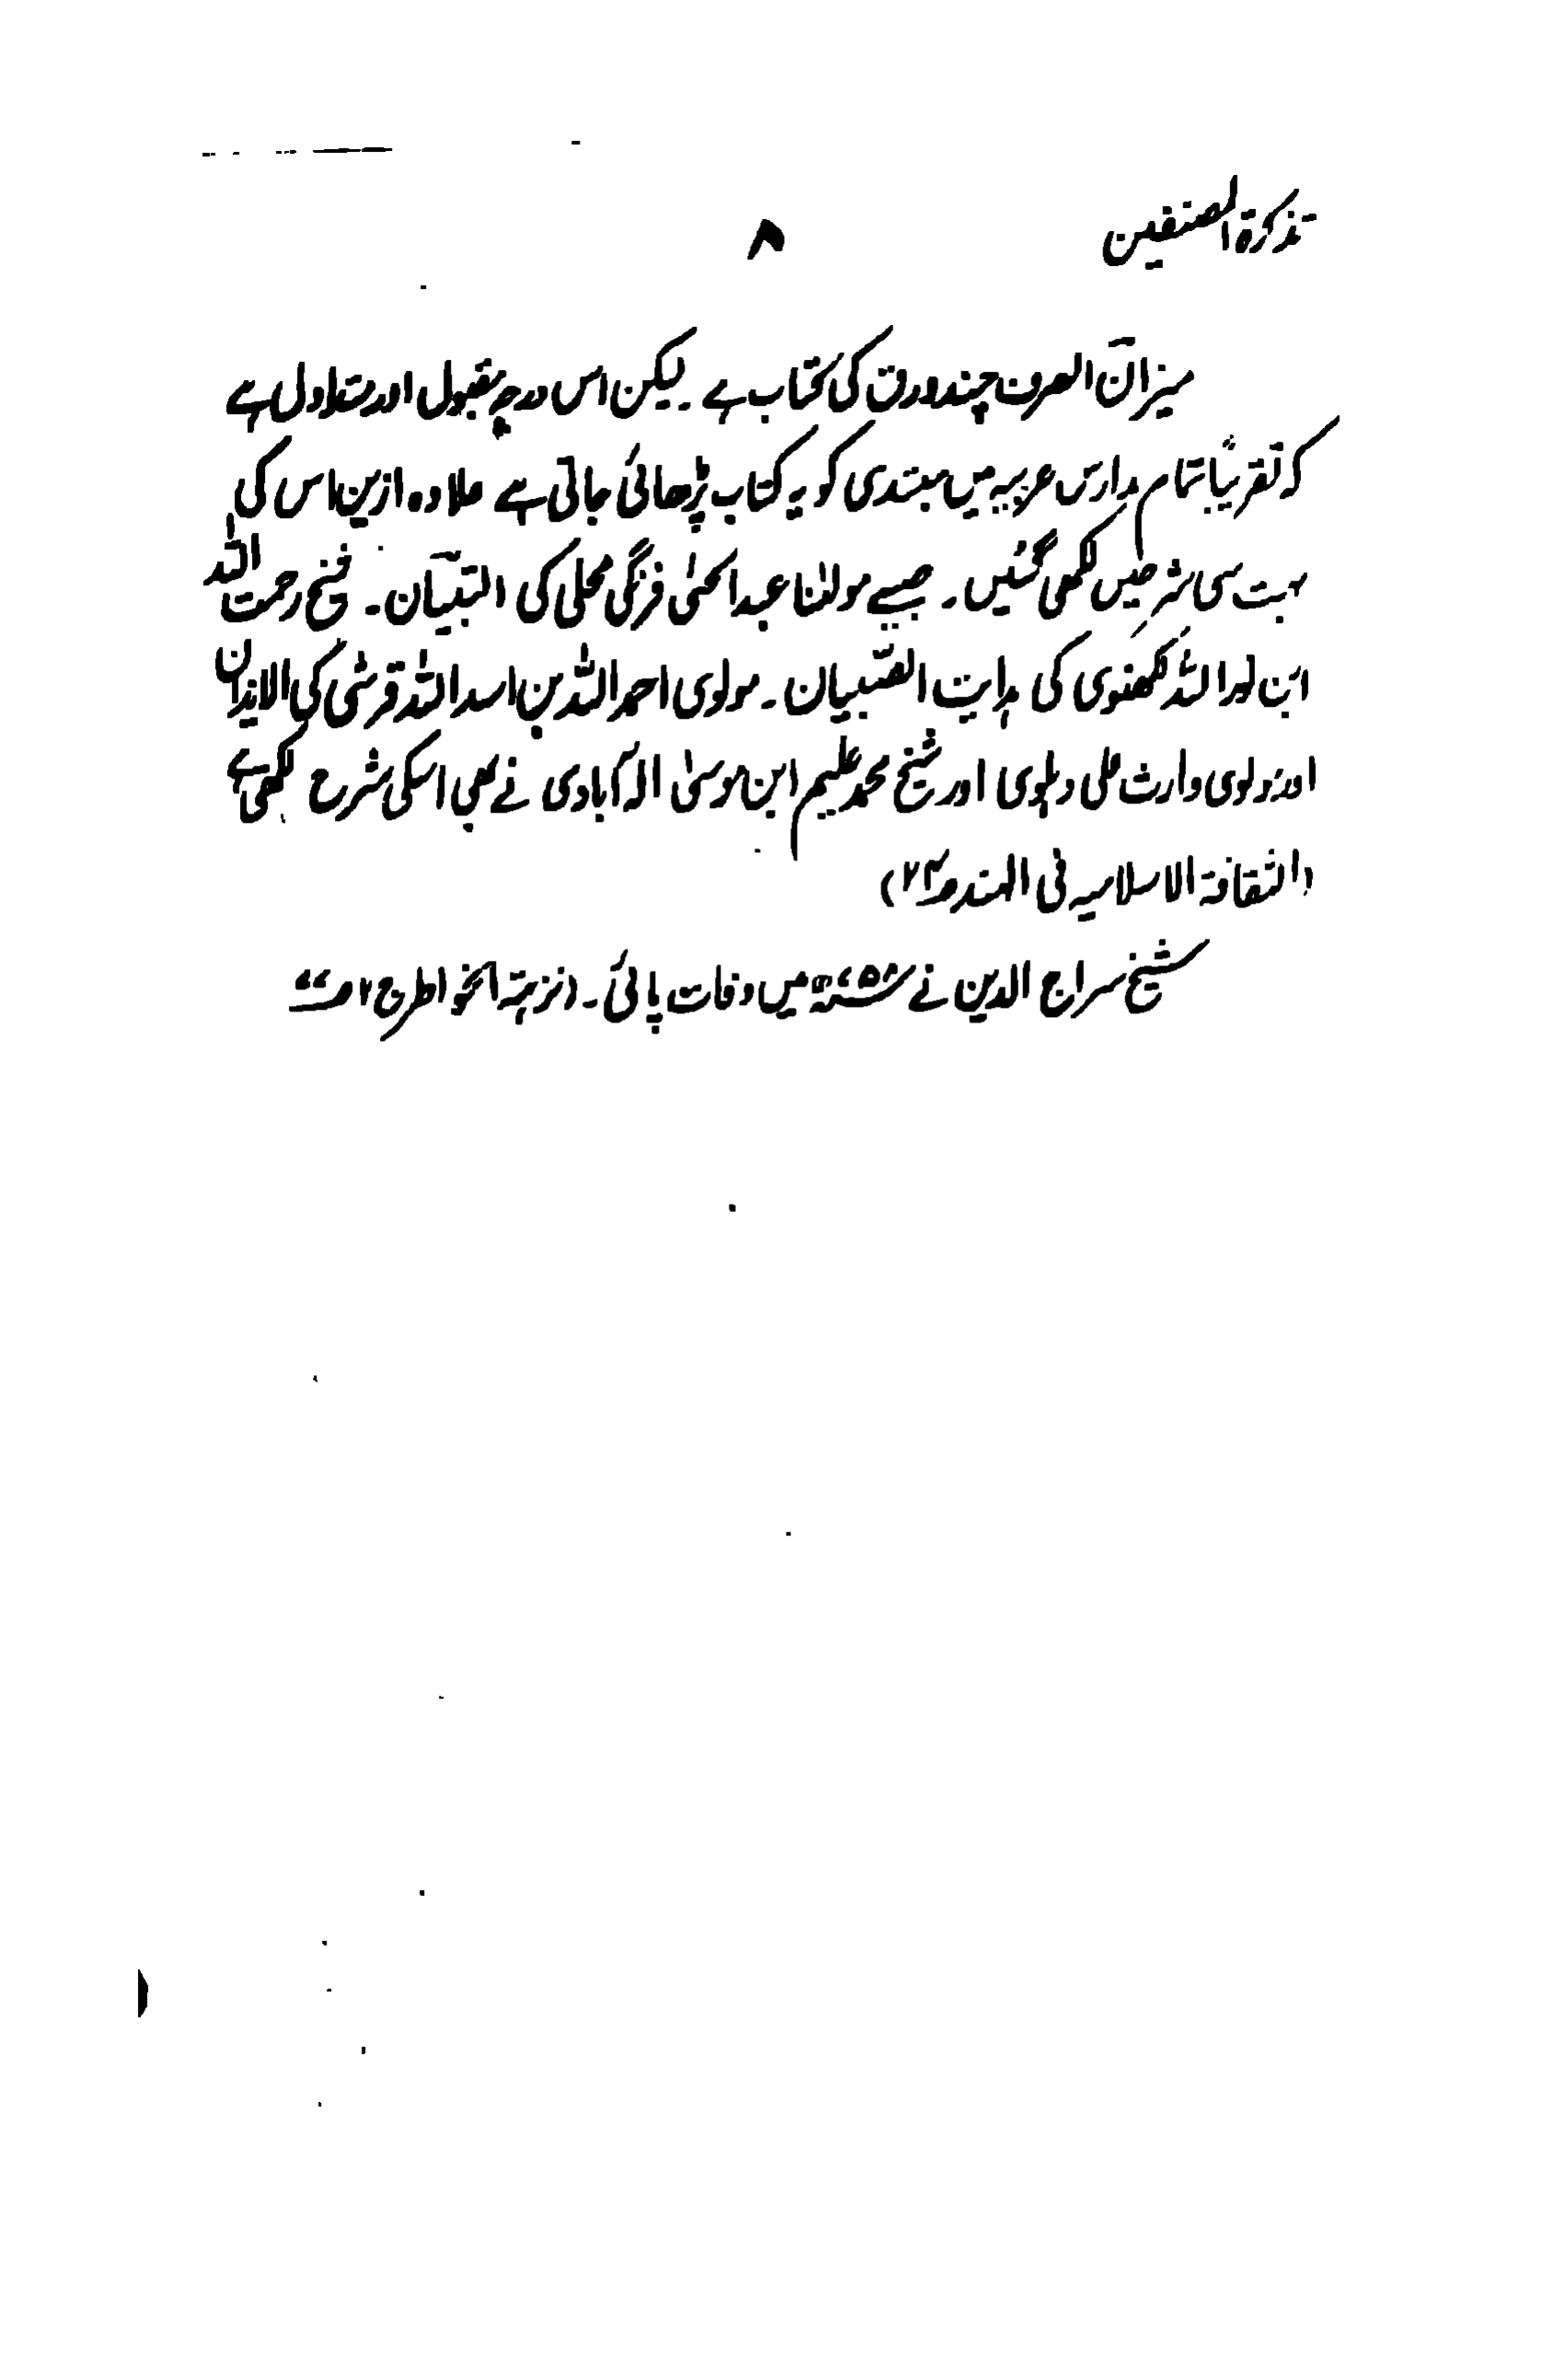 تذکرۃ المصنفین
۸
میزان الصرف چند ورق کی کتاب ہے۔ لیکن اس درجہ مقبول اور متداول ہے
کہ تقریباً تمام مدارس عربیہ میں مبتدی کو یہ کتاب پڑھائی جاتی ہے علاوہ ازیں اس کی
بہت سی شرحیں لکھی گئیں۔ جیسے مولٰنا عبدالحئی فرنگی محلی کی التبیان۔ شیخ رحمت اللہ
ابن نور اللہ لکھنوی کی ہدایت الصبیان۔ مولوی احمد اللہ بن اسد اللہ قرشی کی
اور مولوی وارث علی دہلوی اور شیخ محمد علیم ابن موسیٰ الہ آبادی نے بھی اسکی شرح لکھی ہے
(الثقافۃ الاسلامیہ فی الہند ص۲۳)
شیخ سراج الدین نے میں وفات پائی۔ (نزہتہ الخواطر ج۲